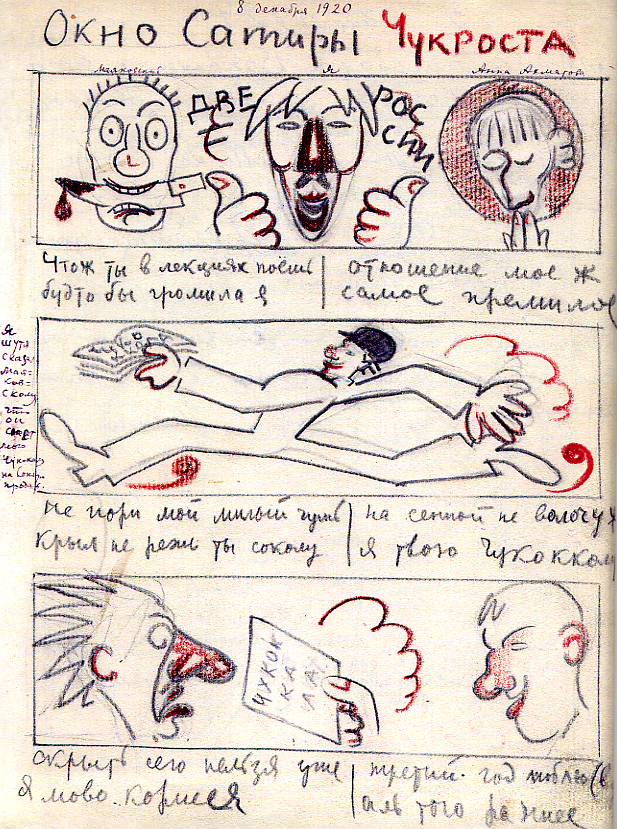 8 декабря 1920
Окно Сатиры Чукроста
Маяковский
Я
Анна Ахматова
ДВЕ РОССИИ
Чтож ты в лекциях поешь
будто бы громила я
отношение мое ж
самое премилое
Я
шутя
сказал
Мая-
ков-
скому
что
он
мою
Чукоккалу
на
не пори мой милый чушь
крыл не режь ты соколу
на сенной не волочу ж
я твою Чукоккалу
ЧУКОК
КА
ЛА
скрыть сего нельзя уже
я мово Корнея
третий год люблю (в
аль того раннее